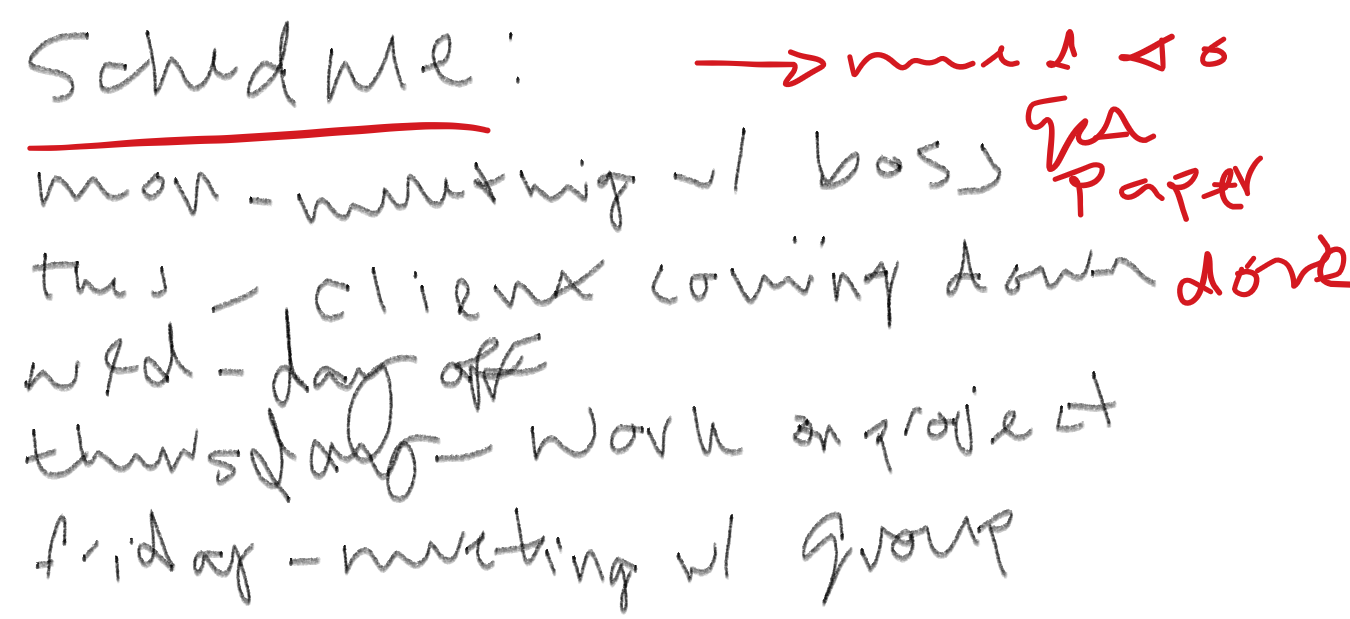 Schedule:
mon - meeting w/ boss
tues - client coming down
wed - day off
thursday - work on project
friday - meeting w/ group
→ need to
get
paper
done